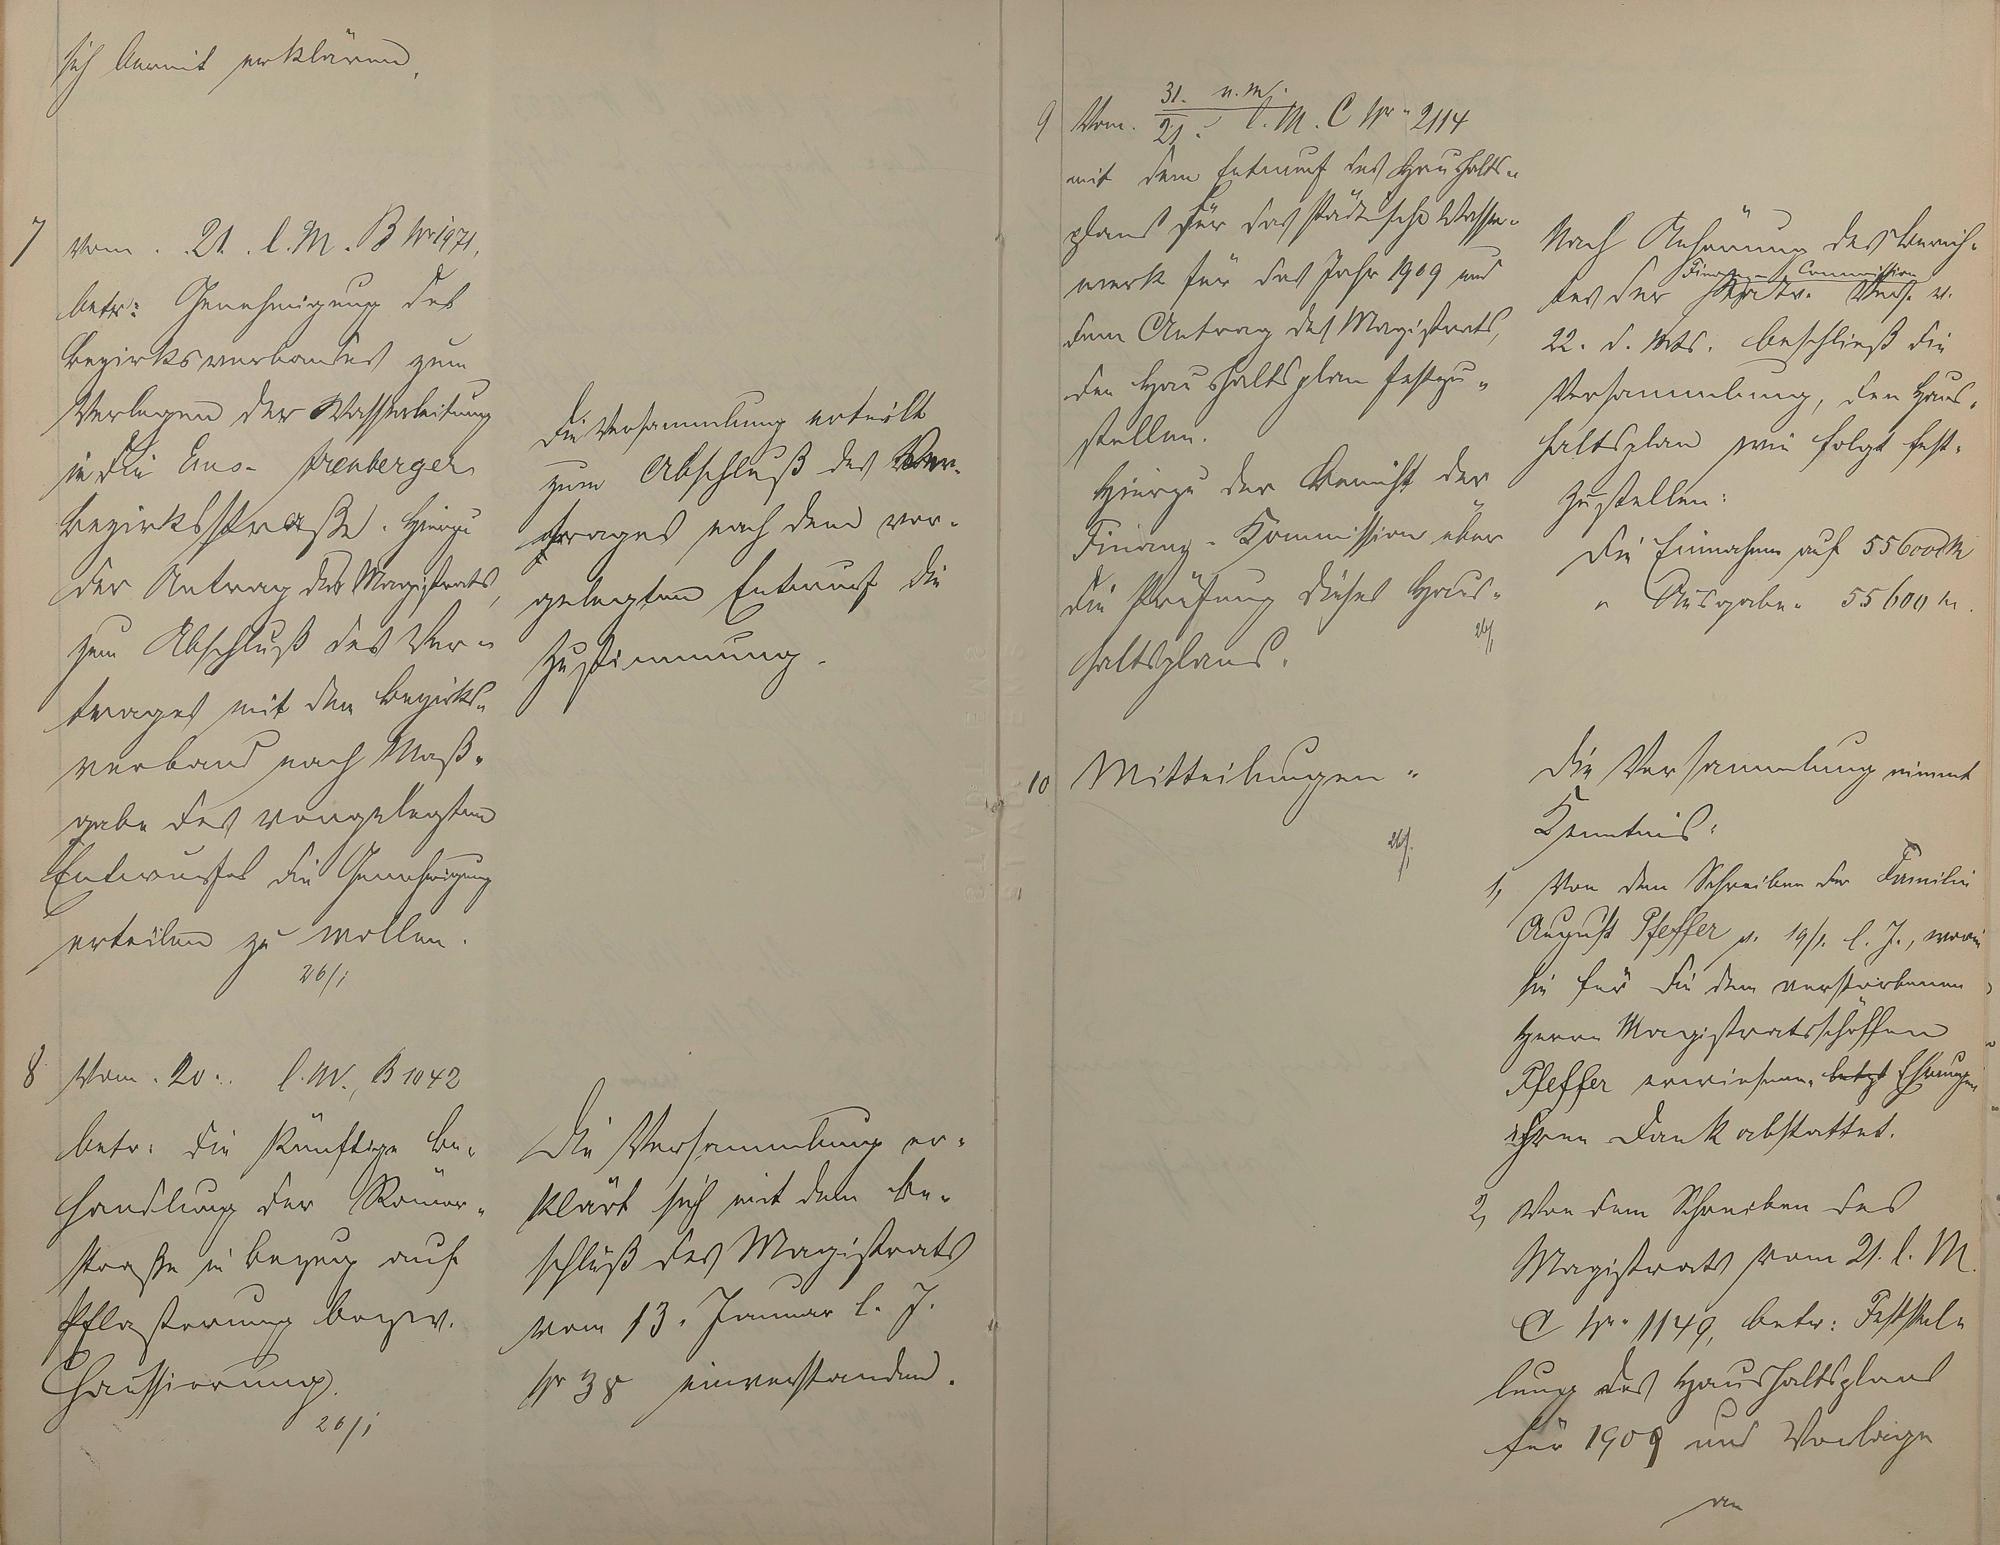 sich damit erklären.
7
Vom 21. l. M. B Nr 1971,
betr: Genehmigung des
Bezirksverbandes zum
Verlegen der Wasserleitung
in die Ems-Arenberger
Bezirksstraße. Hierzu
der Antrag des Magistrats,
zum Abschluß des Ver-
trages mit dem Bezirks-
verband nach Maß-
gabe des vorgelegten
Entwurfes die Genehmigung
erteilen zu wollen.
26/1
Die Versammlung erteilt
zum Abschluß des Ver-
trages nach dem vor-
gelegten Entwurf die
Zustimmung.
8 Vom 20. l. M., B 1042
betr: die künftige Be-
handlung der Römer-
straße in bezug auf
Pflasterung bezw.
Chaussierung.
26/1
Die Versammlung er-
klärt sich mit dem Be-
schluß des Magistrats
vom 13. Januar l. J.
Nr 38 einverstanden.
9 Vom 31. v. M./21. l. M. C Nr. 2114
mit dem Entwurf des Haushalts-
plans für das städtische Wasser-
werk für das Jahr 1909 und
dem Antrag des Magistrats,
den Haushaltsplan festzu-
stellen.
Hierzu der Bericht der
Finanz-Kommission über
die Prüfung dieses Haus-
haltsplans.
26/1
Nach Anhörung des Berich-
Finanz-Commission
tes der v.
22. d. Mts. beschließt die
Versammlung, den Haus-
haltsplan wie folgt fest-
zustellen:
Die Einnahme auf 55600 M
" Ausgabe " 55600 M.
10 Mitteilungen.
26/1
Die Versammlung nimmt
Kenntnis:
1, Von dem Schreiben der Familie
August Pfeffer v. 19/1. l. J., worin
sie für die dem verstorbenen
Herrn Magistratsschöffen
Pfeffer erwiesenen Ehrungen
ihren Dank abstattet.
2, Von dem Schreiben des
Magistrats vom 21. l. M.
C Nr. 1149, betr: Feststel-
lung des Haushaltsplans
für 1909 und Vorlage
an